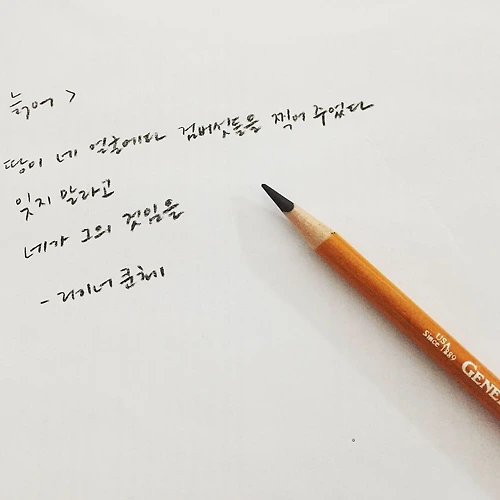 늙어 >
땅이 네 얼굴에다 검버섯들을 찍어 주었다
잊지 말라고
네가 그의 것임을
- 라이너 쿤체
USA
Since 1889
GENE